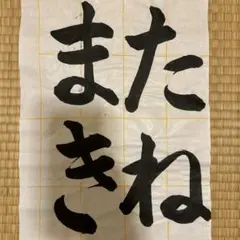 たね
まき